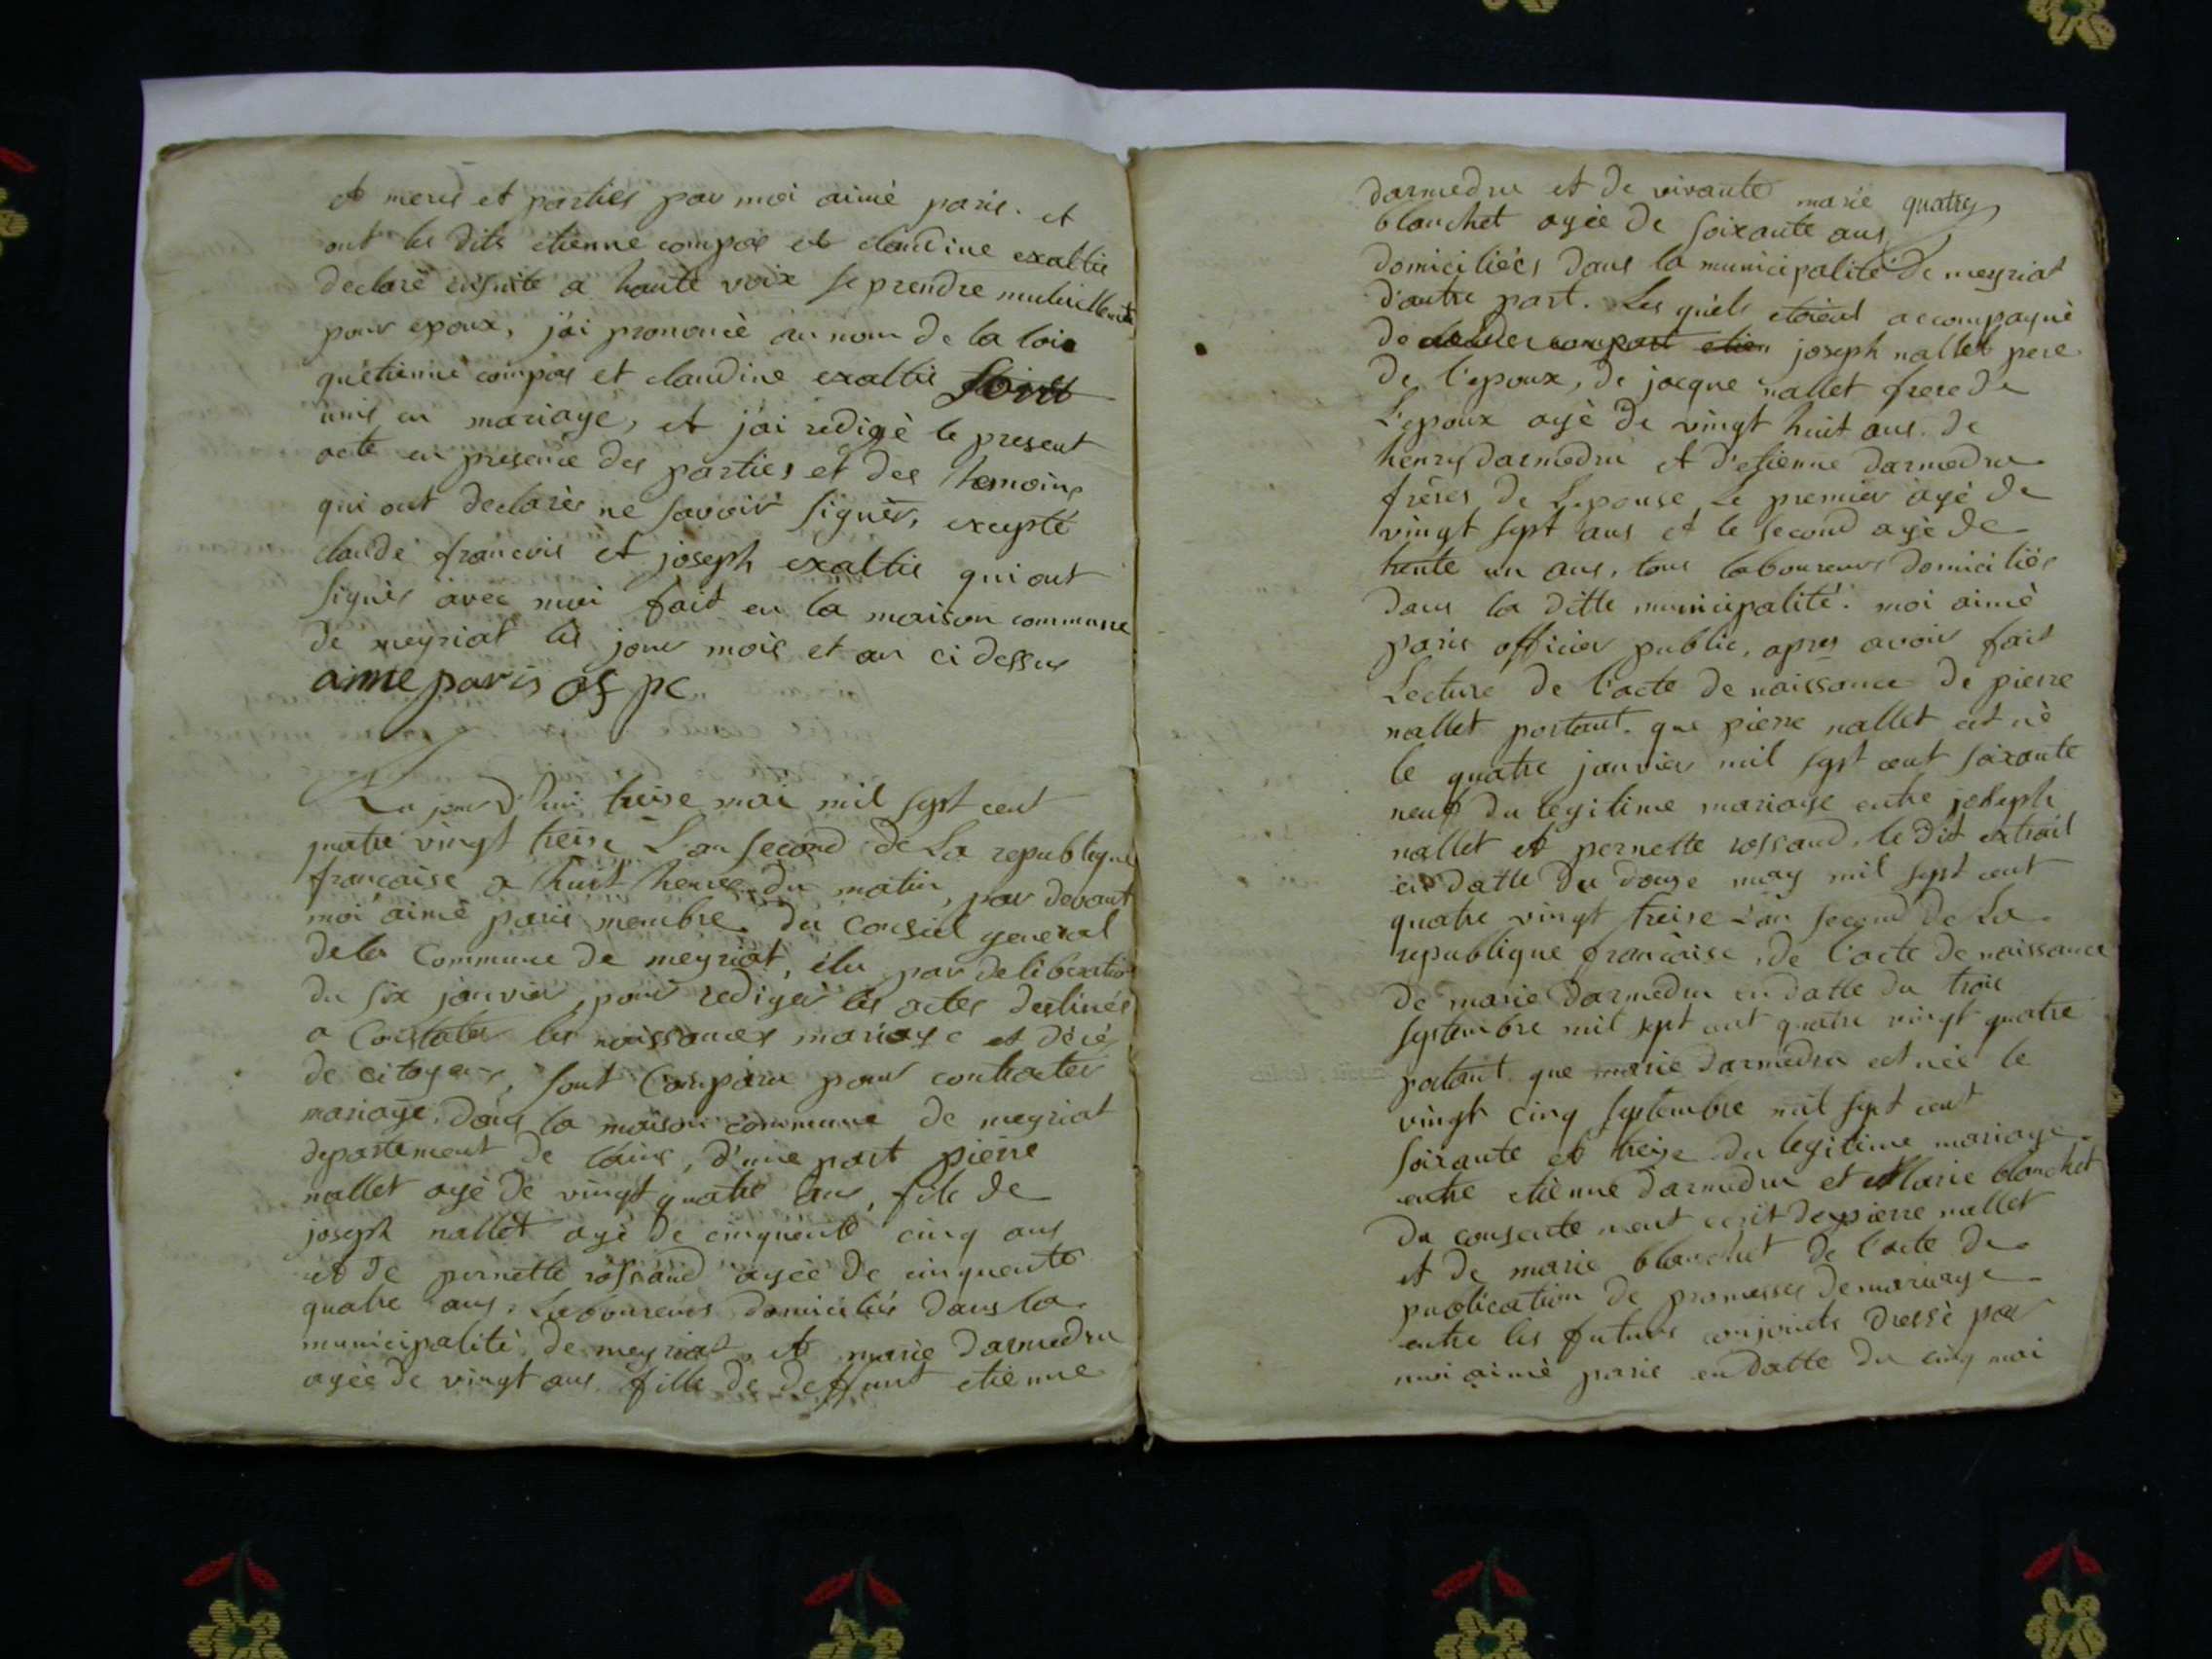 et meres et parties par moi aimé paris. et
ont les dits etienne compas et claudine exaltie
declaré ensuite a haute voix se prendre mutuellement
pour epoux, j'ai prononcé au nom de la loix
qu'etienne compas et claudine exaltie soient
unis en mariage, et j'ai redigé le present
acte en presence des parties et des temoins
qui ont declarés ne savoir signer, excepté
claude francois et joseph exaltie qui ont
signés avec moi fait en la maison commune
de meyriat les jour mois et an ci dessus
aime paris of pc
Au jourd'hui treise mai mil sept cent
quatre vingt treise L'an second de La republique
francaise a huit heures du matin, par devant
moi aimé paris membre du Conseil general
de la Commune de meyriat, élu par deliberation
du six janvier, pour rediger les actes destinés
a Constater les naissances mariage et décés
de citoyens, sont Comparu pour contracter
mariage dans la maison commune de meyriat
departement de lains, d'une part pierre
nallet agé de vingt quatre ans, fils de
joseph nallet agé de cinquente cinq ans
et de pernette rossand agée de cinquente
quatre ans, Laboureurs domiciliés dans la
municipalité de meyriat, et marie darmedru
agée de vingt ans fille de deffunt etienne
darmedru et de vivante marie quatre
blanchet agée de soixante ans
domiciliées dans la municipalité de meyriat
d'autre part. Les quels etoient accompagné
de joseph nallet pere
de l'epoux, de jacque nallet frere de
L'epoux agé de vingt huit ans. de
henry darmedru et d'etienne darmedru
fréres de Lepouse, Le premier agé de
vingt sept ans et le second agé de
trente un ans, tous laboureurs domiciliés
dans la ditte municipalité. moi aimé
paris officier public, apres avoir fait
Lecture de l'acte de naissance de pierre
nallet portant que pierre nallet est né
le quatre janvier mil sept cent soixante
neuf du legitime mariage entre joseph
nallet et pernette rossand, le dit extrait
en datte du douze may mil sept cent
quatre vingt treise L'an second de La
republique francaise, de l'acte de naissance
de marie darmedru en datte du trois
septembre mil sept cent quatre vingt quatre
portant que marie darmedru est née le
vingt cinq septembre mil sept cent
soixante et treize du legitime mariage
entre etienne darmedru et Marie blanchet
du consente ment ecrit de pierre nallet
et de marie blanchet de l'acte de
publication de promesses de mariage
entre les futurs conjoints dressé par
moi aimé paris en datte du cinq mai